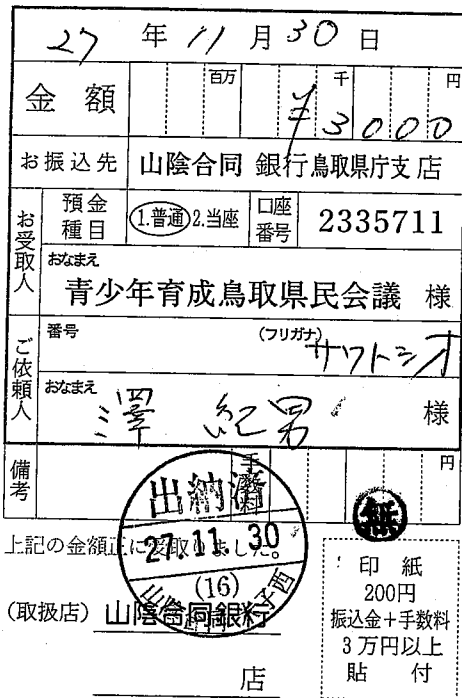 27 年 11 月 30 日
金額 百万 千 円
¥3000
お振込先 山陰合同 銀行 鳥取県庁支 店
お受取人 預金種目 1.普通 2.当座 口座番号 2335711
おなまえ
青少年育成鳥取県民会議 様
ご依頼人 番号 (フリガナ) サワトシオ
おなまえ
澤 紀男 様
備考 手 円
出納済
上記の金額正に受取りました。
27.11.30
(16)
無
(取扱店) 山陰合同銀行
店
印紙
200円
振込金+手数料
3万円以上
貼付